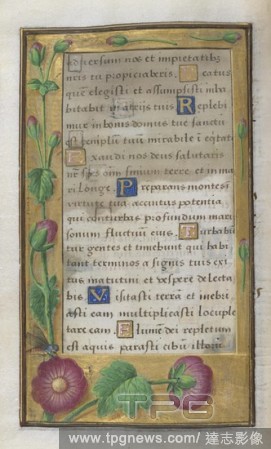 adversum nos et impietatibus
nris tu propiciaberis. Beatus
quē elegisti et assumpsisti inha
bitabit in atrijs tuis Replebi
mur in bonis domus tue sanctū
est templum tuū mirabile ī eqtate
Exaudi nos deus salutaris
nr̄ spes om̄ium finium terre, et in ma
ri longe. Preparans montes ī
virtute tua accīctus potentia,
qui conturbas profundum maris
sonum fluctuum eius. Turbabūt
tur gentes et timebunt qui habi
tant terminos a signis tuis exi
tus matutini et vespere delecta
bis Visitasti terrā et inebri
asti eam multiplicasti locuple
tare eam. Flumen dei repletum
est aquis parasti cibū illorū
TPG
www.tpgnews.com/達志影像